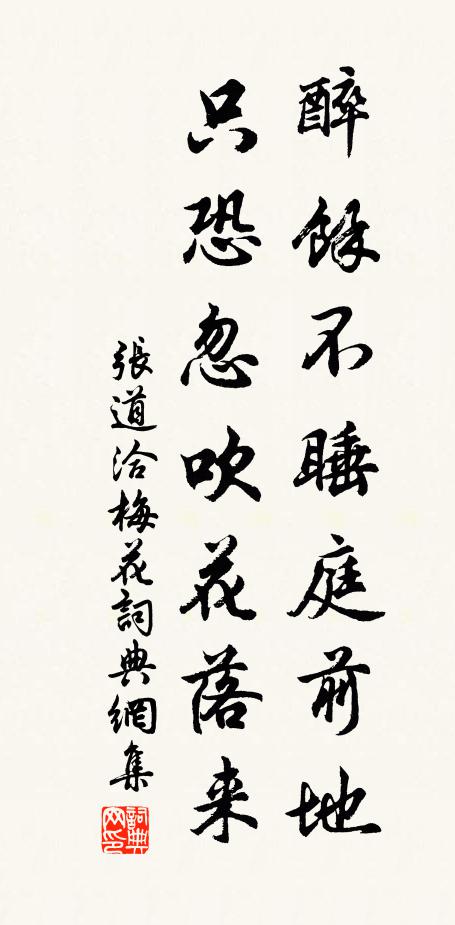 醉餘不睡庭前地
只恐忽吹花落来
張道洽梅花詞典網集
詞典网印